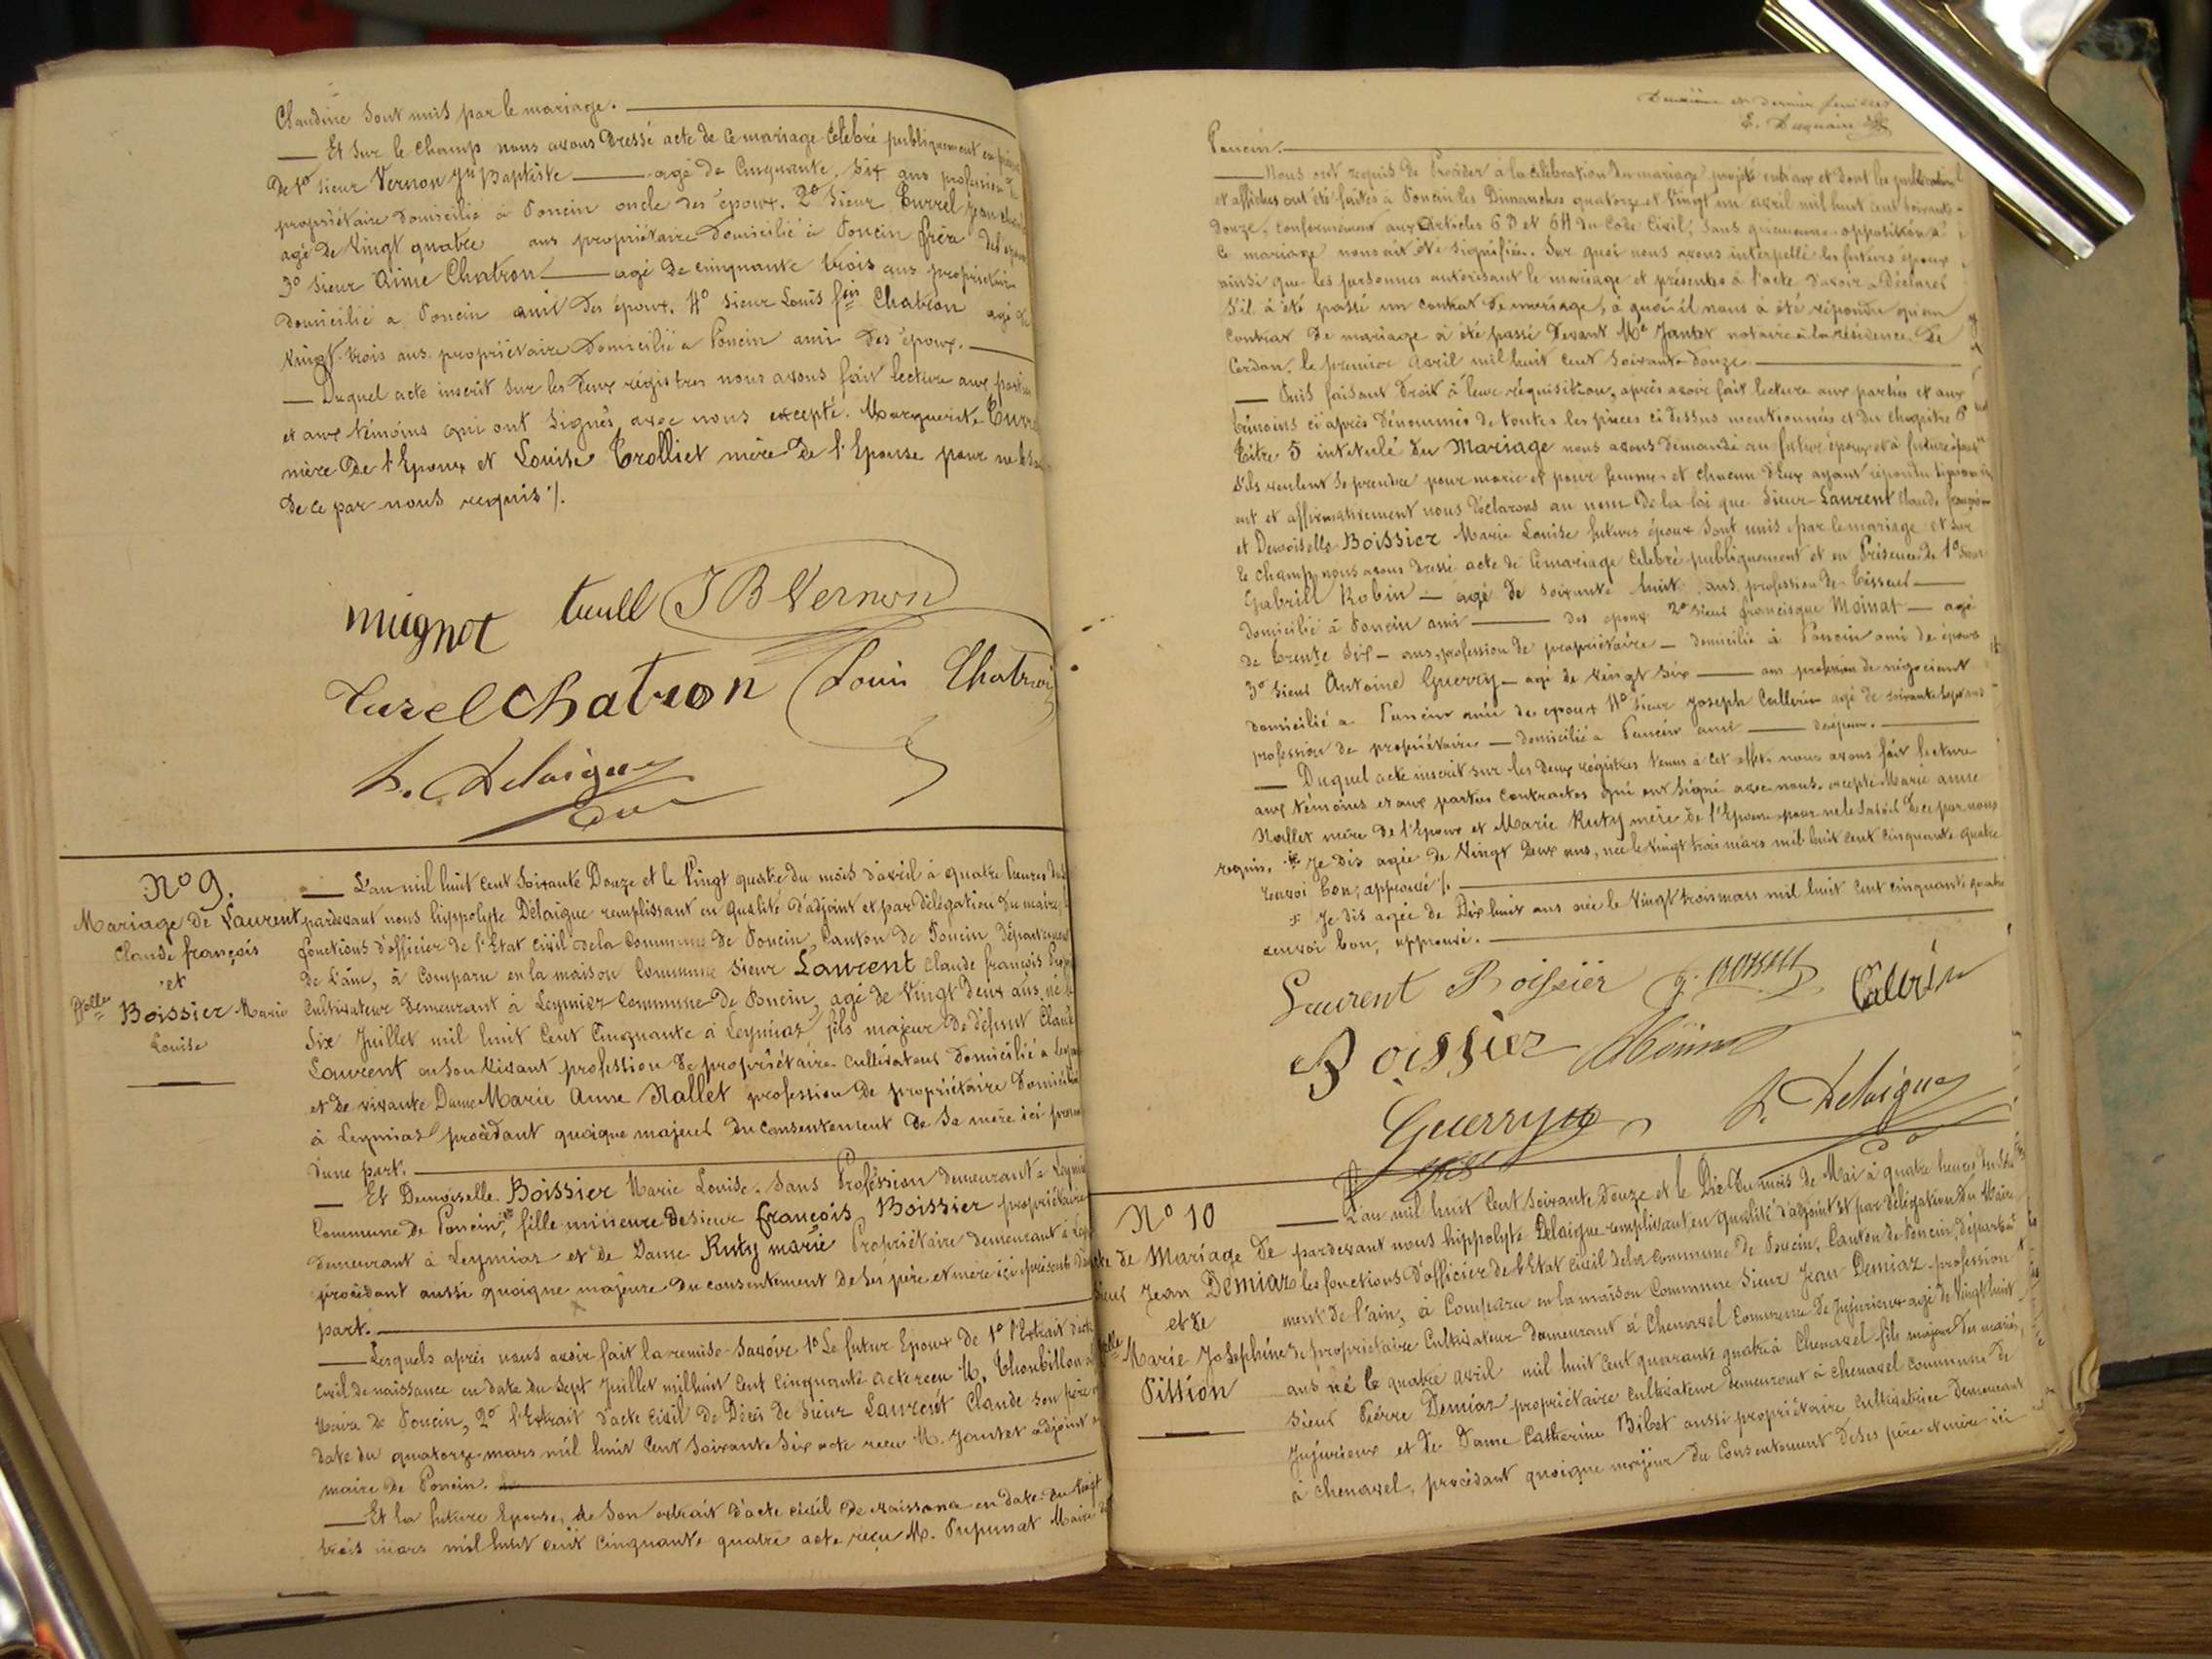 Claudine sont unis par le mariage.
Et sur le champ nous avons dressé acte de ce mariage célébré publiquement en
de 1º sieur Vernon Jn Baptiste agé de Cinquante six ans profession de
propriétaire domicilié à Poncin oncle des époux. 2º Sieur Turrel Jean
agé de vingt quatre ans propriétaire domicilié à Poncin frère de
3º Sieur Aimé Chatron agé de cinquante trois ans propriétaire
domicilié a Poncin ami des époux. 4º Sieur Louis fois Chatron agé de
vingt trois ans propriétaire domicilié a Poncin ami des époux.
Duquel acte inscrit sur les deux régistres nous avons fait lecture aux
et aux témoins qui ont signés avec nous excepté. Marguerite
mère de l'Epoux et Louise Trolliet mère de l'Epouse pour ne
de ce par nous requis %.
mugnot J B Vernon
Turel Chatron Louis Chatron
h. Delaigue
Nº 9.
Mariage de Laurent
Claude françois
et
Delle Boissier Marie
Louise
L'an mil huit cent soixante Douze et le Vingt quatre du mois d'avril à quatre heures du
pardevant nous hippolyte Délaigue remplissant en qualité d'adjoint et par délégation du maire
fonctions d'officier de l'Etat civil de la Commune de Poncin Canton de Poncin Département
de L'ain, à Comparu en la maison Commune Sieur Laurent Claude francois
Cultivateur demeurant à Leymiaz Commune de Poncin, agé de Vingt deux ans, né
Six Juillet mil huit Cent Cinquante à Leymiaz fils majeur de défunt Claude
Laurent en son vivant profession de propriétaire Cultivateur domicilié a
et de vivante Dame Marie Anne Nallet profession de propriétaire domiciliée
à Leymiaz procédant quoique majeur du consentement de sa mère ici
d'une part.
Et Demoiselle Boissier Marie Louise. Sans Profession demeurant a
Commune de Poncin, fille mineure de sieur françois Boissier propriétaire
demeurant à Leymiaz et de Dame Ruty marie Propriétaire demeurant a
procédant aussi quoique majeure du consentement de ses père et mère ici présents
part.
Lesquels après nous avoir fait la remise Savoir 1º Le futur Epoux de 1º l'Extrait
Civil de naissance en date du Sept Juillet mil huit Cent Cinquante acte reçu M. Thoubillon
Maire de Poncin, 2º l'Extrait d'acte Civil de Décès de Sieur Laurent Claude son père
date du quatorze mars mil huit Cent Soixante Six acte reçu M. Jantet adjoint
maire de Poncin.
Et la future Epouse, de Son extrait d'acte civil de naissance en date du Vingt
trois mars mil huit cent Cinquante quatre acte reçu M. Pupunat Maire de
Deuxième et dernier feuillet
Poncin.
Nous ont requis de Procéder à la célébration du mariage projeté entr'eux et dont les publications
et affiches ont été faites à Poncin les Dimanches quatorze et Vingt un avril mil huit cent soixante
douze, conformément aux Articles 63 et 64 du Code Civil, Sans qu'aucune opposition à
ce mariage nous ait été signifiée. Sur quoi nous avons interpellé les futurs époux
ainsi que les personnes autorisant le mariage et présentes à l'acte d'avoir a Déclarer
S'il à été passé un contrat de mariage, à quoi il nous à été répondu qu'un
Contrat de mariage à été passé Devant Me Jantet notaire à la résidence de
Cerdon, le premier avril mil huit cent soixante douze
Puis faisant droit à leur réquisition, après avoir fait lecture aux parties et aux
témoins ci après dénommés de toutes les pièces ci dessus mentionnées et du chapitre 6
titre 5 intitulé du Mariage nous avons demandé au futur époux et à future épouse
s'ils veulent se prendre pour marie et pour femme, et chacun d'Eux ayant répondu
ent et affirmativement nous déclarons au nom de la loi que Sieur Laurent Claude françois
et Demoiselle Boissier Marie Louise futurs époux sont unis par le mariage et sur
le champ nous avons dressé acte de ce mariage célébré publiquement et en Présence de 1º Sieur
Gabriel Robin agé de soixante huit ans profession de Tisseur
domicilié à Poncin ami des epoux 2º Sieur francisque Moinat agé
de trente six ans, profession de propriétaire domicilié à Poncin ami de époux
3º Sieur Antoine Guerry agé de vingt six ans profession de négociant
domicilié a Poncin ami de epoux 4º Sieur Joseph Callerin agé de soixante sept ans
profession de propriétaire domicilié a Poncin ami des époux.
Duquel acte inscrit sur les deux régistres tenus à cet effet, nous avons fait lecture
aux témoins et aux parties Contractes qui ont signé avec nous, excepté Marie anne
Nallet mère de l'Epoux et Marie Ruty mère de l'Epouse pour ne le Savoir de ce par nous
requis. Je dis agée de Vingt Deux ans, née le vingt trois mars mil huit cent cinquante quatre
renvoi bon, approuvé %.
Je dis agée de Dix huit ans née le Vingt trois mars mil huit Cent Cinquante quatre
renvoi bon, approuvé.
Laurent Boissier
Boissier
Guerry h. Delaigue
Nº 10
de Mariage de
Sieur Jean Demiaz
et de
Delle Marie Josephine
Pittion
L'an mil huit Cent Soixante douze et le Dix du mois de Mai à quatre heures du Soir
pardevant nous hippolyte Delaigue remplissant en qualité d'adjoint et par délégation du Maire
les fonctions d'officier de l'Etat civil de la Commune de Poncin, Canton de Poncin, départ
ment de l'ain, à Comparu en la maison Commune Sieur Jean Demiaz profession
de propriétaire Cultivateur demeurant à Chenavel Commune de Jujurieux agé de Vingt huit
ans né le quatre avril mil huit cent quarante quatre à Chenavel fils majeur des mariés,
Sieur Pierre Demiaz propriétaire Cultivateur demeurant à Chenavel commune de
Jujurieux et de Dame Catherine Bibet aussi propriétaire Cultivatrice Demeurant
à Chenavel, procédant quoique majeur du Consentement de ses père et mère ici